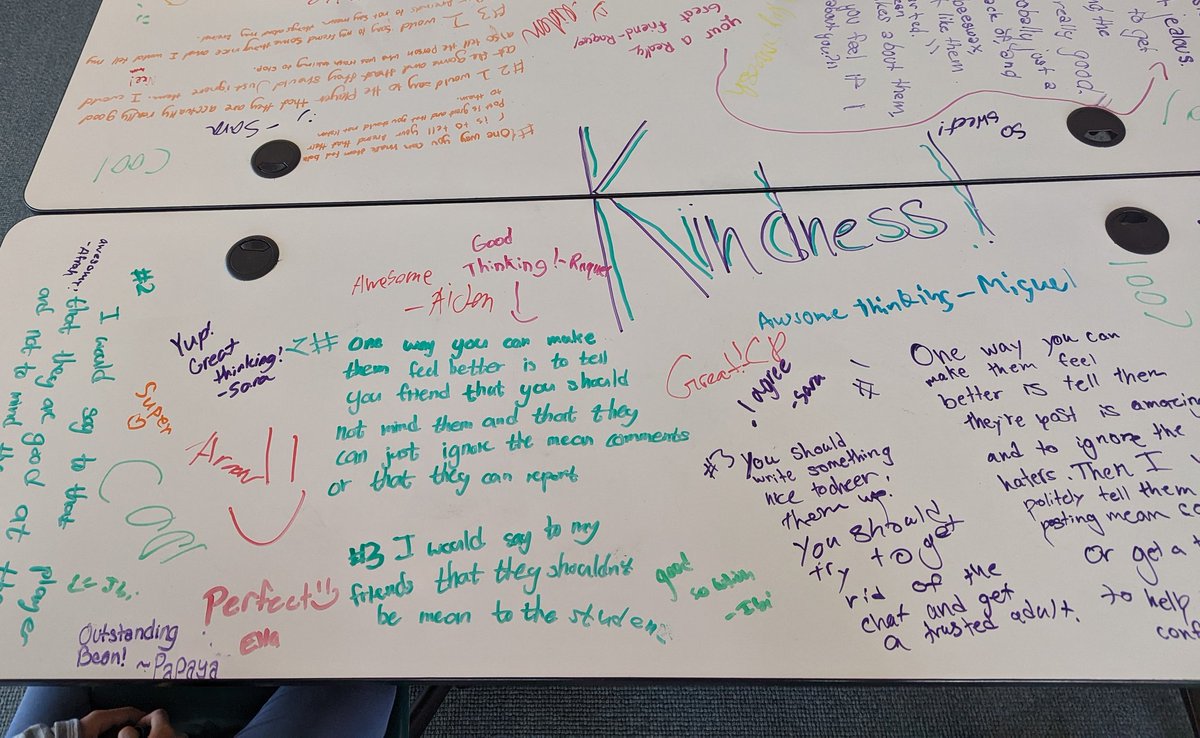 Kindness!
#1 One way you can make them feel better
is to tell your friend that their
post is good and that you should not listen
to them
#2 I would say to the player that they are actually really good
at the game and that they should just ignore them. I would
also tell the person who was mean to stop.
#3 I would say to my friend something nice and I would tell my
friends to not say mean things about my friend.
Nice!
:) - Sara
Cool
your a Really
Great friend-Raquel
So sweet!
jealous.
to get
and the
really good.
probably just a
beeswax
like them
about them,
you feel if I
Good
Thinking! - Raquel
Awesome
- Aiden
Awsome thinking - Miguel
Cool
awesome!
#2
I would say to that player
that they are good at the
and not to mind the
Yup!
Great
thinking!
-Sara
Super
Cool
Perfect :)
Ella
Outstanding
Bean!
~Papaya
One way you can make
them feel better is to tell
you friend that you should
not mind them and that they
can just ignore the mean comments
or that they can report
#3 I would say to my
friends that they shouldn't
be mean to the student
good
solution
- Ibi
Great!!
I agree
-sara
#3 You should
write something
nice to cheer
them up.
You should
try to get
rid of the
chat and get
a trusted adult.
One way you can
make them feel
better is tell them
they're post is amazing
and to ignore the
haters. Then I
politely tell them
posting mean
Or get a
to help